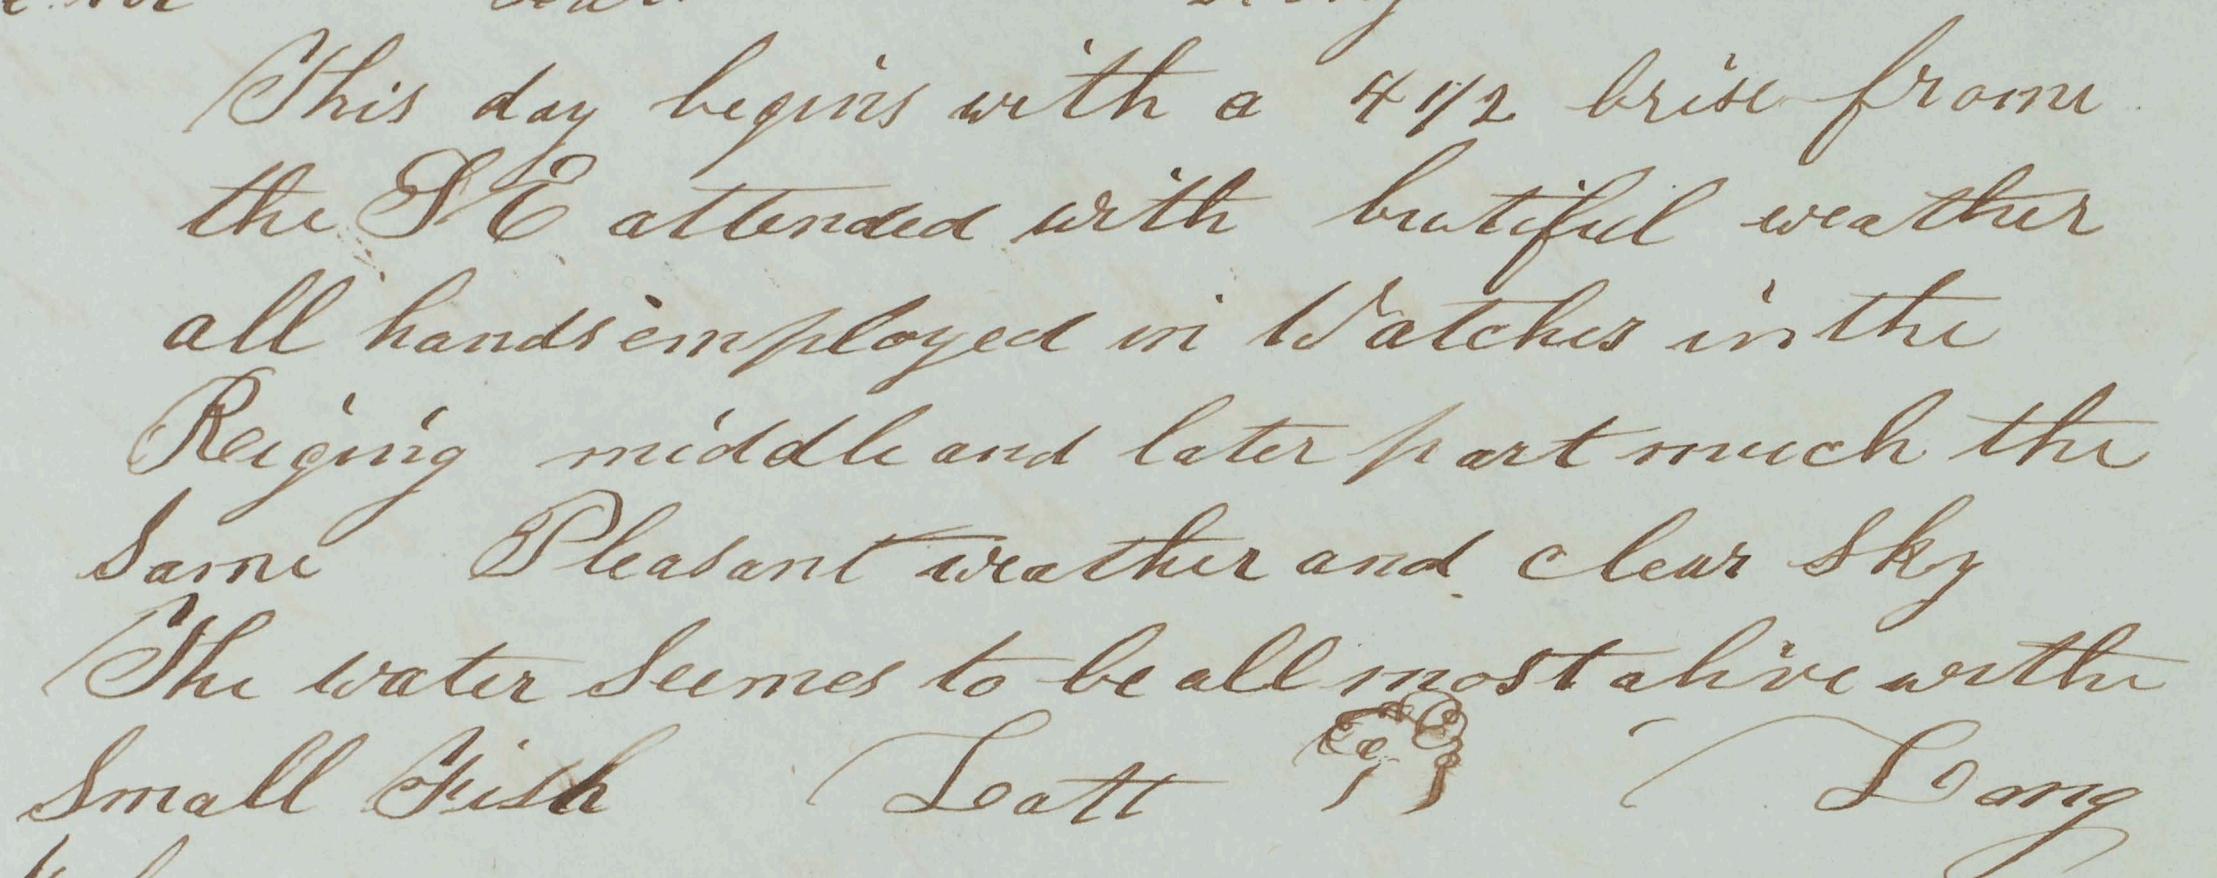 This day begins with a 4 1/2 brise frome
the SE attended with butiful weather
all hands employed in Watches in the
Reiging middle and later part much the
Same Pleasant weather and clear sky
The water Seemes to be all most alive withe
Small Fish Latt Long